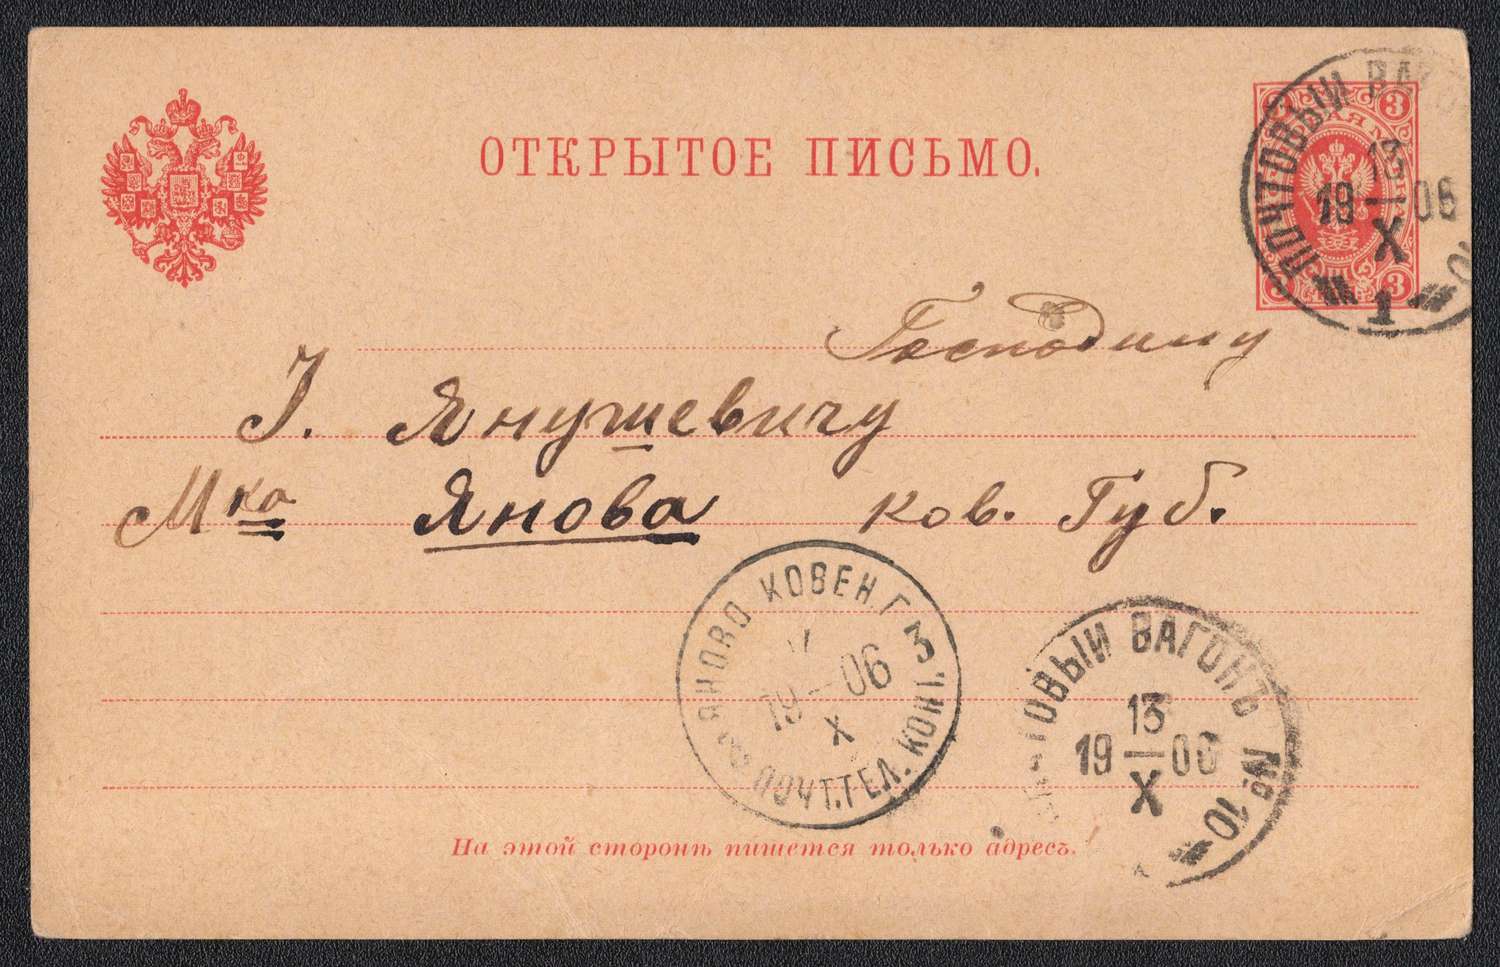 ОТКРЫТОЕ ПИСЬМО.
3 3
3 3
ПОЧТОВЫЙ
13
19 — 06
X
1
Господину
І. Янушевичу
Мка Янова ков. Губ.
ЯНОВО КОВЕН. Г.
19 — 06
X
ПОЧТ.ТЕЛ. КОНТ.
3
ТОВЫЙ ВАГОНЪ № 10
13
19 — 06
X
На этой сторонѣ пишется только адресъ.